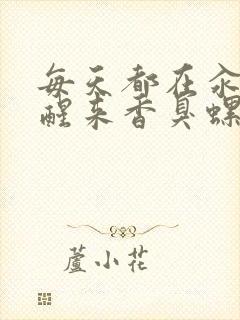 每天都在汆
醒来香臭螺
蘆小花